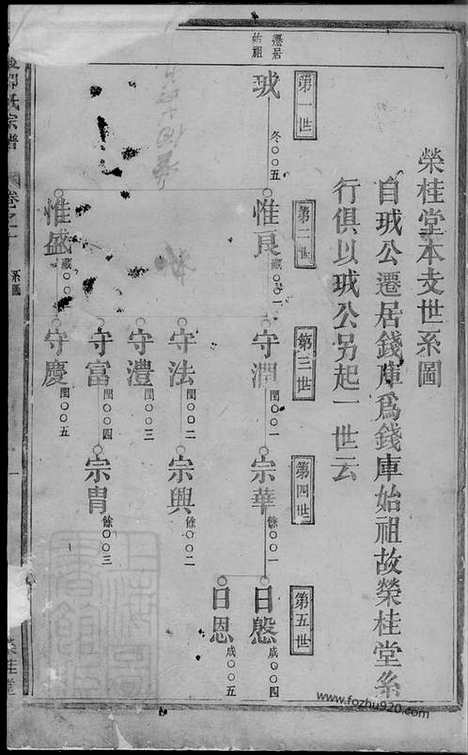 榮桂堂本支世系圖
自珬公遷居錢庫爲錢庫始祖故榮桂堂系
行俱以珬公另起一世云
第一世
第二世
第三世
第四世
第五世
遷居
始祖
珬
冬〇〇五
惟良
藏〇〇一
惟盛
藏〇〇
守潤
閏〇〇一
守法
閏〇〇二
守澧
閏〇〇三
守富
閏〇〇四
守慶
閏〇〇五
宗華
餘〇〇一
宗興
餘〇〇二
宗胄
餘〇〇三
日慇
成〇〇四
日恩
成〇〇五
氏宗譜
卷之一
系圖
一
榮桂堂
www.fozhu920.com